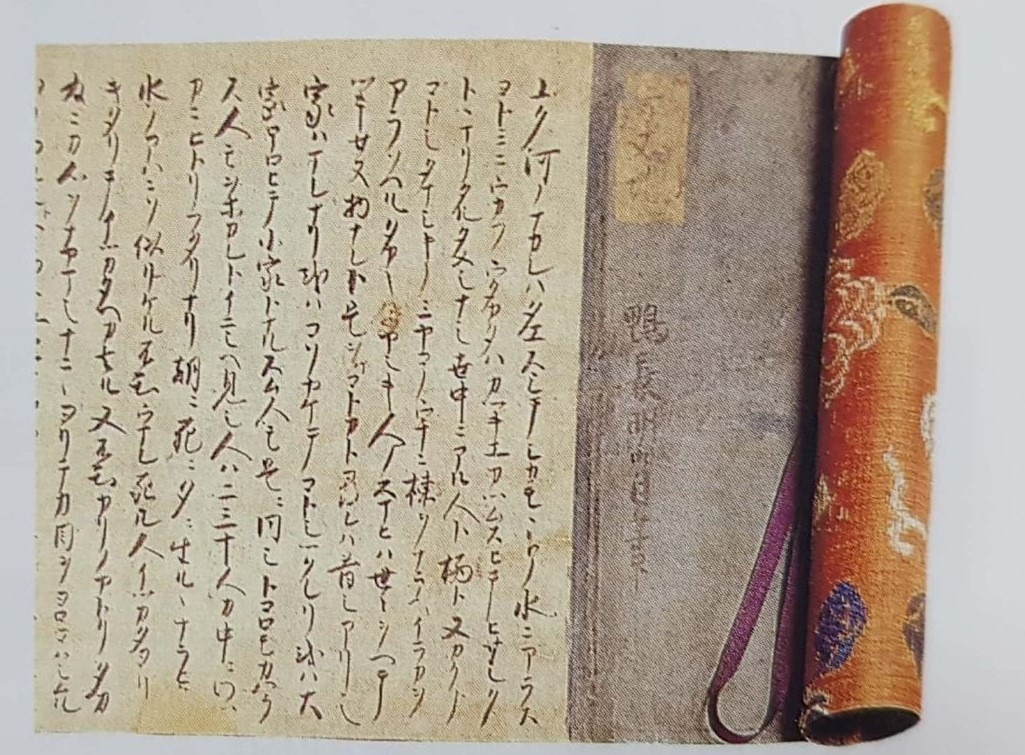 方丈記
鴨長明自筆
ユク河ノナカレハタエスシテシカモヽトノ水ニアラス
ヨトミニウカフウタカタハカツキエカツムスヒテヒサシク
トヽマリタルタメシナシ世中ニアル人ト栖ト又カクノ
コトシタマシキノミヤコノウチニ棟ヲナラヘイラカヲ
アラソヘルタカキイヤシキ人ノスマヒハ世々ヲヘテ
ツキセヌ物ナレト是ヲマコトカト尋レハ昔シアリシ
家ハマレナリ或ハコソヤケテコトシツクレリ或ハ大
家ホロヒテ小家トナルスム人モ是ニ同シトコロモカハラ
ス人モヲホカレトイニシヘ見シ人ハ二三十人カ中ニワツ
カニヒトリフタリナリ朝ニ死ニ夕ニ生ルヽナラヒ
水ノアハニソ似リケル不知ウマレ死ル人イツカタヨリ
キタリテイツカタヘカ去ル又不知カリノヤトリタカ
為ニカ心ヲナヤマシナニヽヨリテカ目ヲヨロコハシム